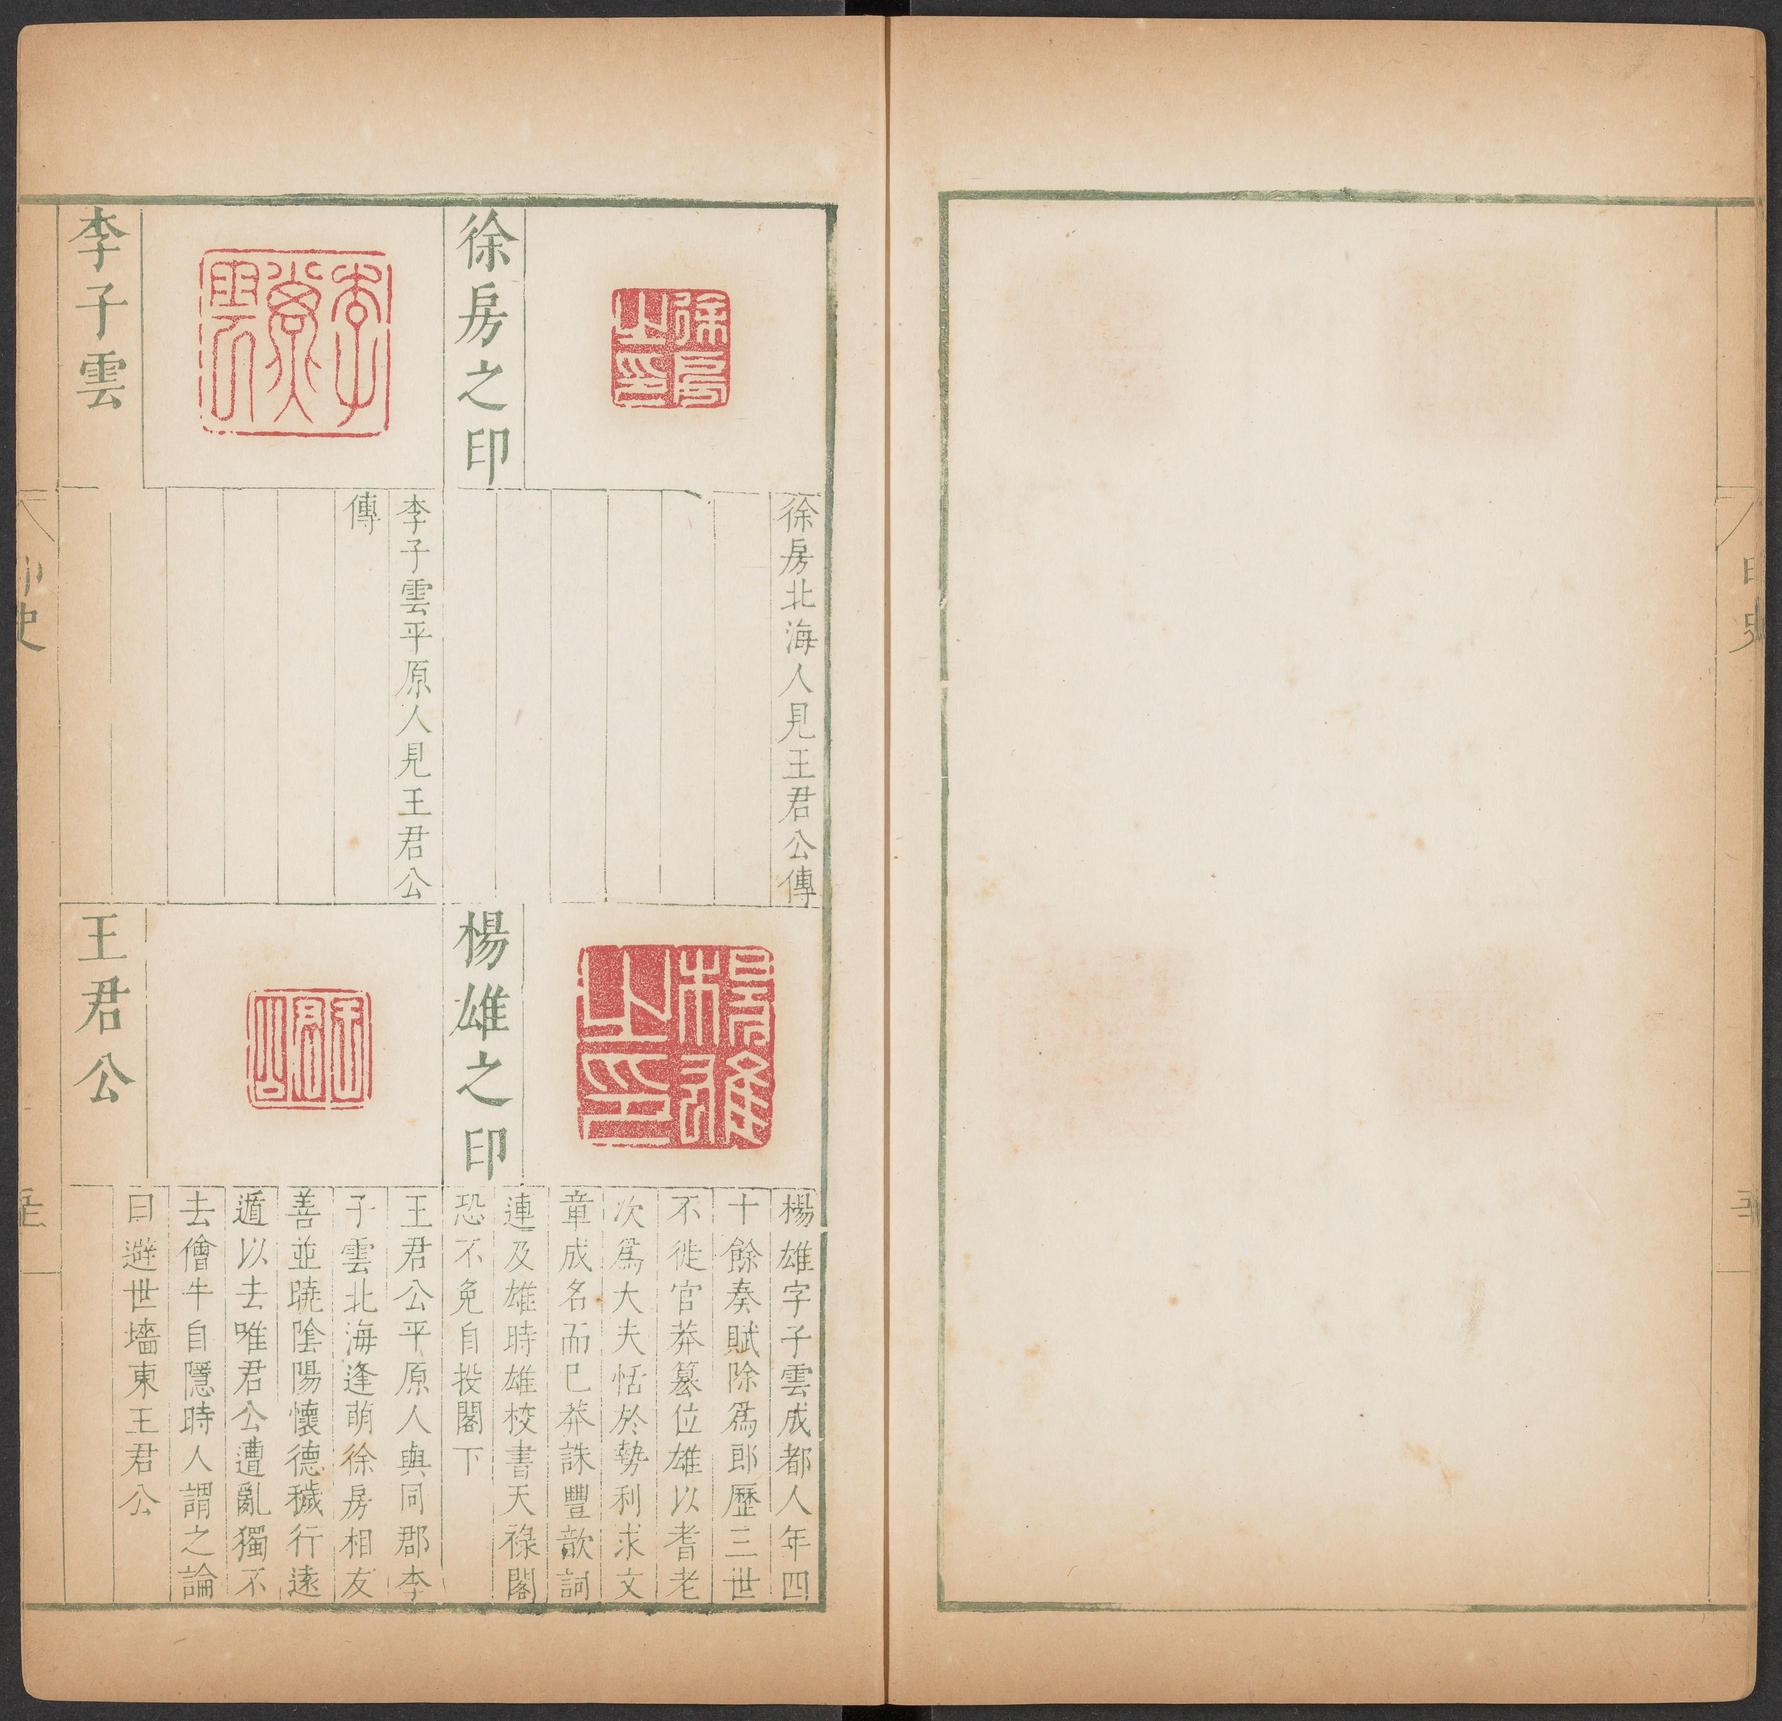 徐房之印
徐房北海人見王君公傳
李子雲
李子雲平原人見王君公
傳
楊雄之印
楊雄字子雲成都人年四
十餘奏賦除爲郎歷三世
不徙官莽篡位雄以耆老
次爲大夫恬於勢利求文
章成名而已莽誅豐歆詞
連及雄時雄校書天祿閣
恐不免自投閣下
王君公
王君公平原人與同郡李
子雲北海逢萌徐房相友
善並曉陰陽懷德穢行遠
遁以去唯君公遭亂獨不
去儈牛自隱時人謂之論
曰避世墻東王君公
印史